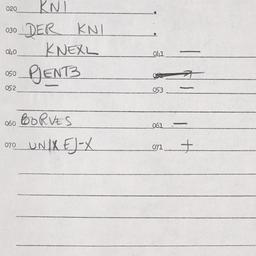 020 KNI .
030 DER KNI .
040 KNEXL 041 —
050 PJENTB
052 — 053 —
060 BORVES 061 —
070 UNIX EJ-X 071 +